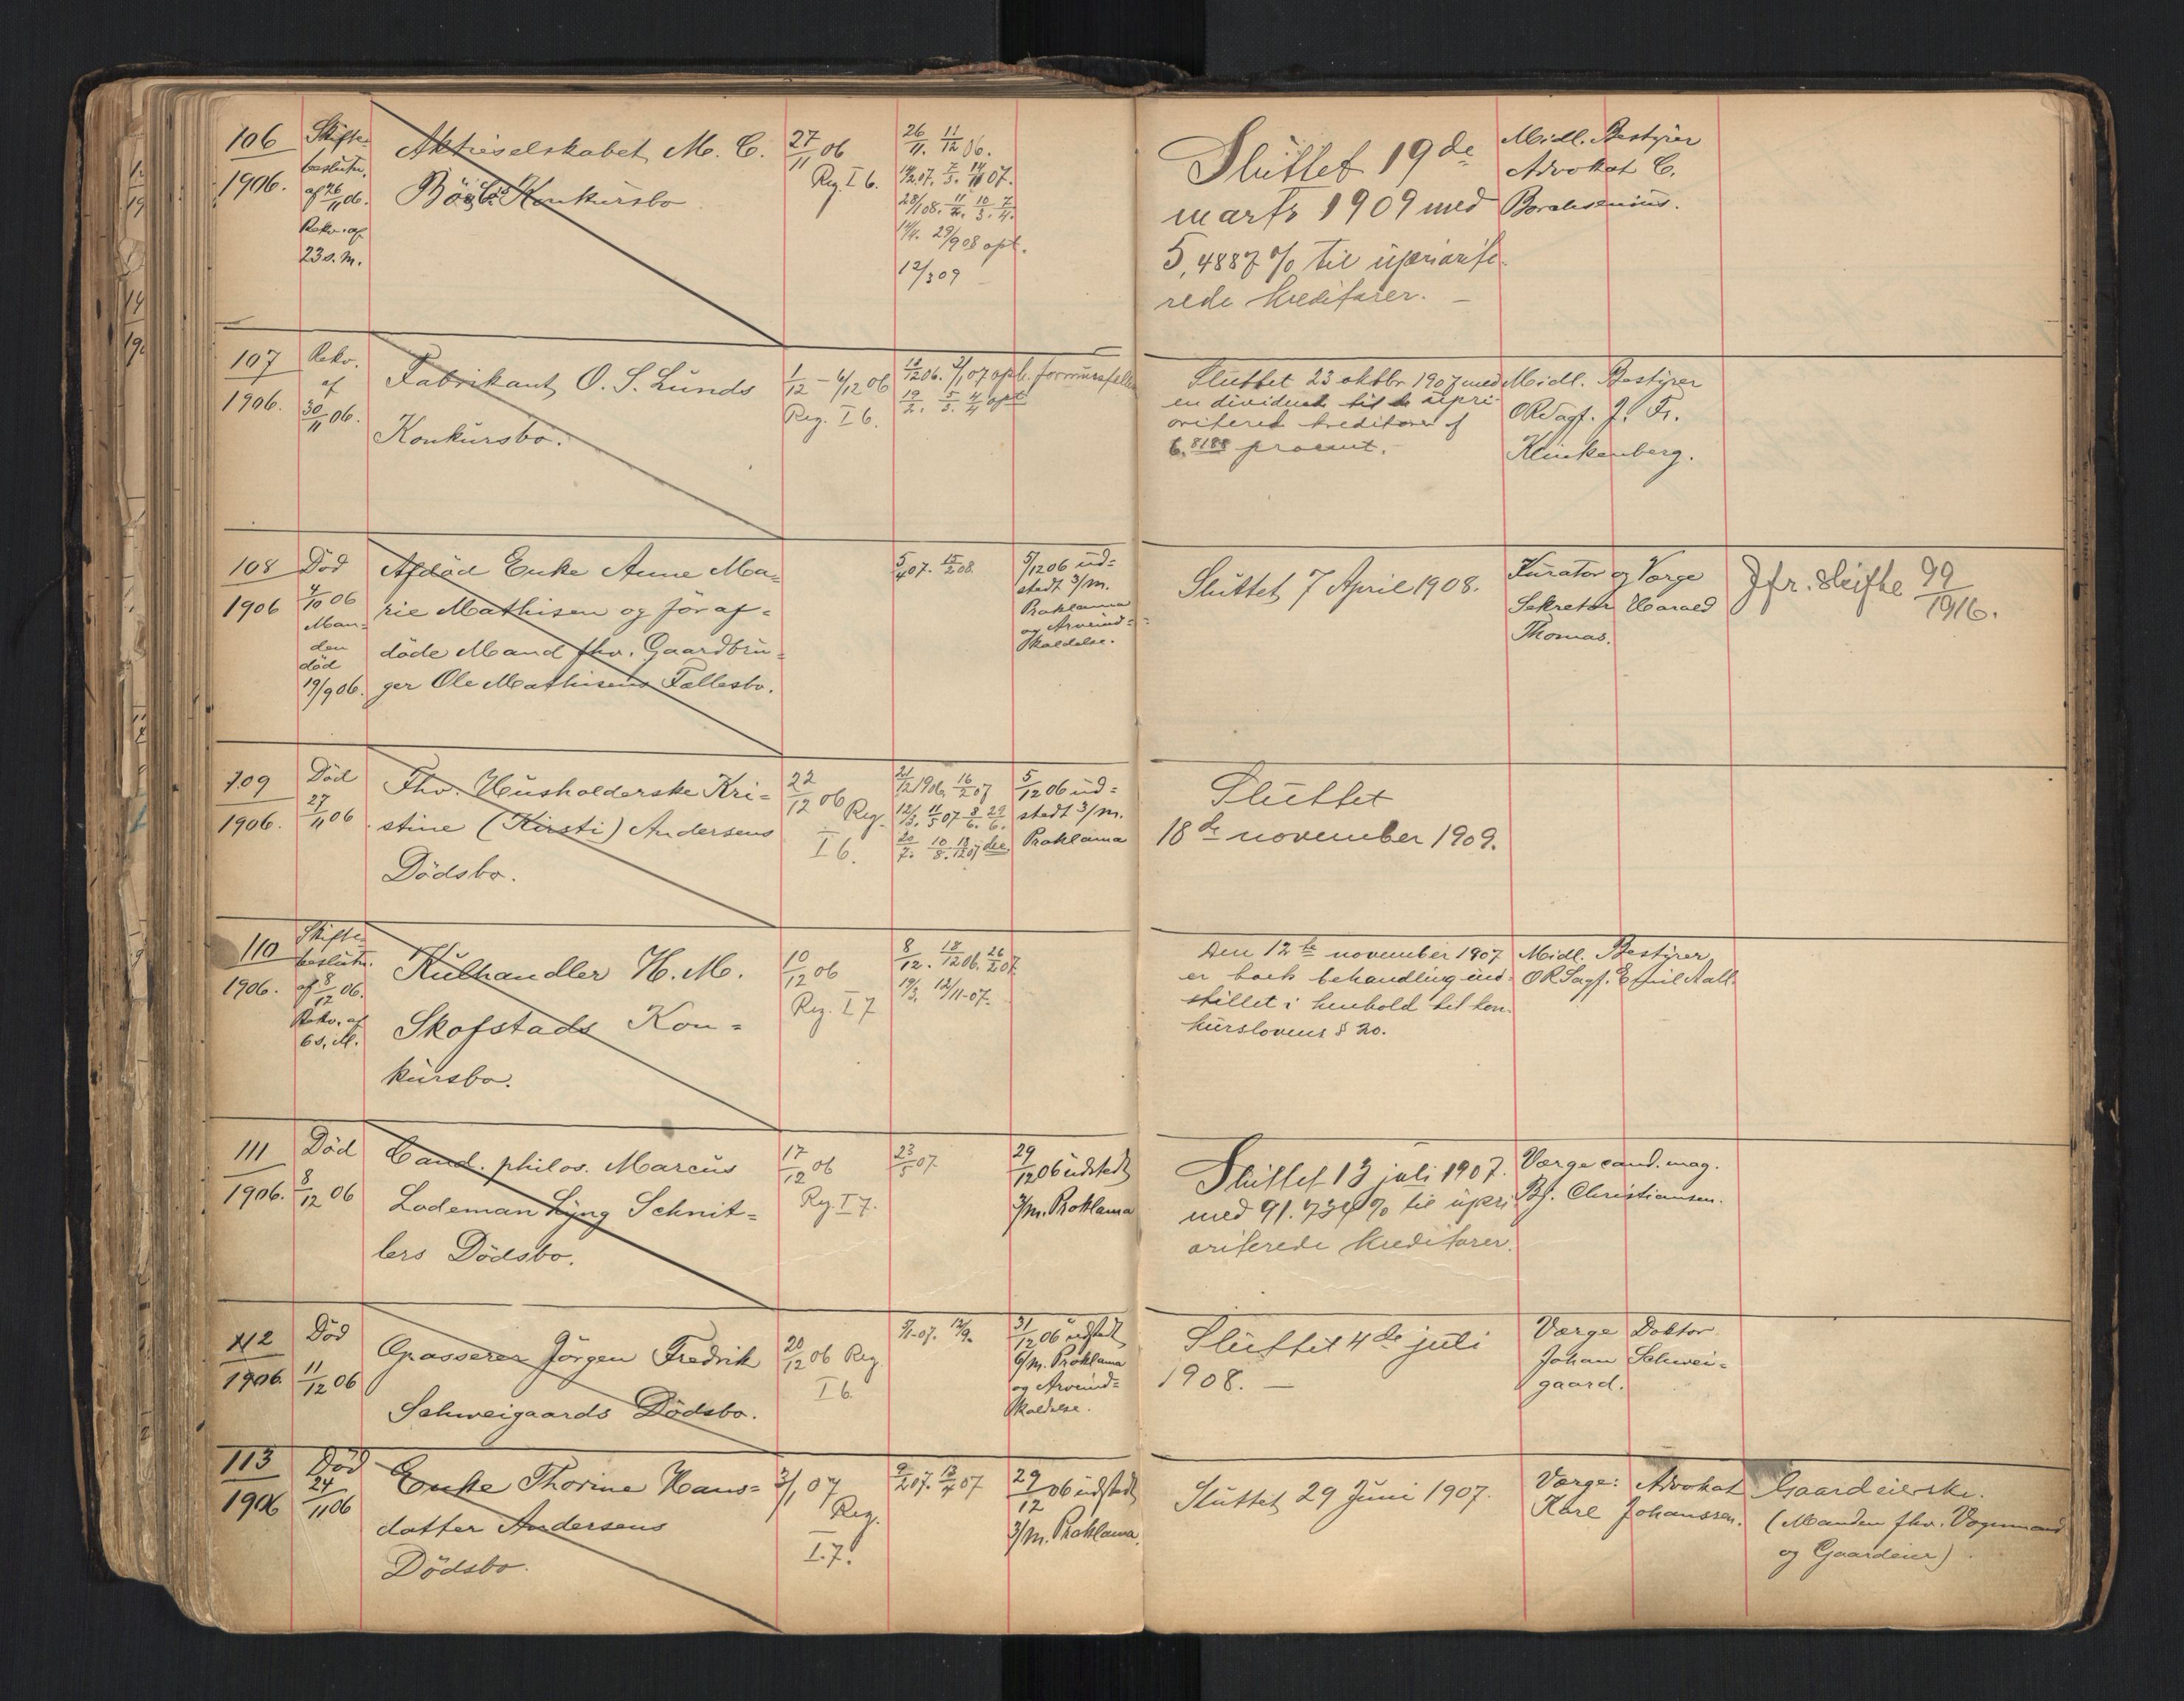 106
1906.
Skifte-
beslutn.
af 26/11 06.
Rekv. af
23 s. M.
Aktieselskabet M. C.
Konkursbo
27/11 06
Reg. I 6.
26/11. 11/12 06.
12/3 09
Sluttet 19de
marts 1909 med
5,4887 % til upriorite-
rede kreditorer. –
Midl. Bestyrer
Advokat C.
Borchsenius.
107
1906.
Rekv.
af
30/11 06.
Fabrikant O. S. Lunds
Konkursbo.
1/12 - 4/12 06
Reg. I 6.
Sluttet 23 oktbr 1907 med
en dividende til upri-
oriterede kreditorer af
6.8188 procent.
Midl. Bestyrer
ORSagf. J. Fr.
Klinkenberg.
108
1906
Död
4/10 06
Man-
den
död
19/9 06.
Afdöd Enke Anne Ma-
rie Mathisen og för af-
döde Mand fhv. Gaardbru-
ger Ole Mathisens Fællesbo.
5/4 07. 15/2 08.
5/12 06 ud-
stedt 3/m.
Proklama
og Arveind-
kaldelse.
Sluttet 7 April 1908.
Kurator og Værge
Sekretær Harald
Thomas.
Jfr. skifte 99/1916.
109
1906.
Död
27/11 06
Fhv. Husholderske Kri-
stine (Kirsti) Andersens
Dödsbo.
22/12 06 Reg.
I 6.
21/12 1906. 16/2 07
5/12 06 ud-
stedt 3/m.
Proklama
Sluttet
18de november 1909.
110
1906.
Skifte-
beslutn.
af 8/12 06.
Rekv. af
6 s. M.
Kulhandler H. M.
Skofstads Kon-
kursbo.
10/12 06
Reg. I 7
8/12. 18/12 06. 26/2 07.
19/3. 12/11-07.
Den 12te november 1907
er boets behandling ind-
stillet i henhold til kon-
kurslovens § 20.
Midl. Bestyrer
ORSagf. Emil Aall.
111
1906.
Död
8/12 06
Cand. philos. Marcus
Lodeman Lyng Schnit-
lers Dödsbo.
17/12 06
Reg. I 7.
23/5 07.
29/12 06 udstedt
3/m. Proklama
Sluttet 13 juli 1907.
med 91.734 % til upri-
oriterede kreditorer.
Værge cand. mag.
Bj. Christiansen.
112
1906.
Död
11/12 06
Grosserer Jörgen Fredrik
Schweigaards Dödsbo.
20/12 06 Reg.
I 6.
31/12 06 udstedt
6/m. Proklama
og Arveind-
kaldelse.
Sluttet 4de juli
1908. –
Værge Doktor
Johan Schwei-
gaard.
113
1906
Död
24/11 06
Enke Thorine Hans-
datter Andersens
Dödsbo.
3/1 07
Reg.
I. 7.
9/2 07. 13/4 07
29/12 06 udstedt
3/m. Proklama.
Sluttet 29 Juni 1907.
Værge: Advokat
Karl Johanssen.
Gaardeierske.
(Manden fhv. Vognmand
og Gaardeier).